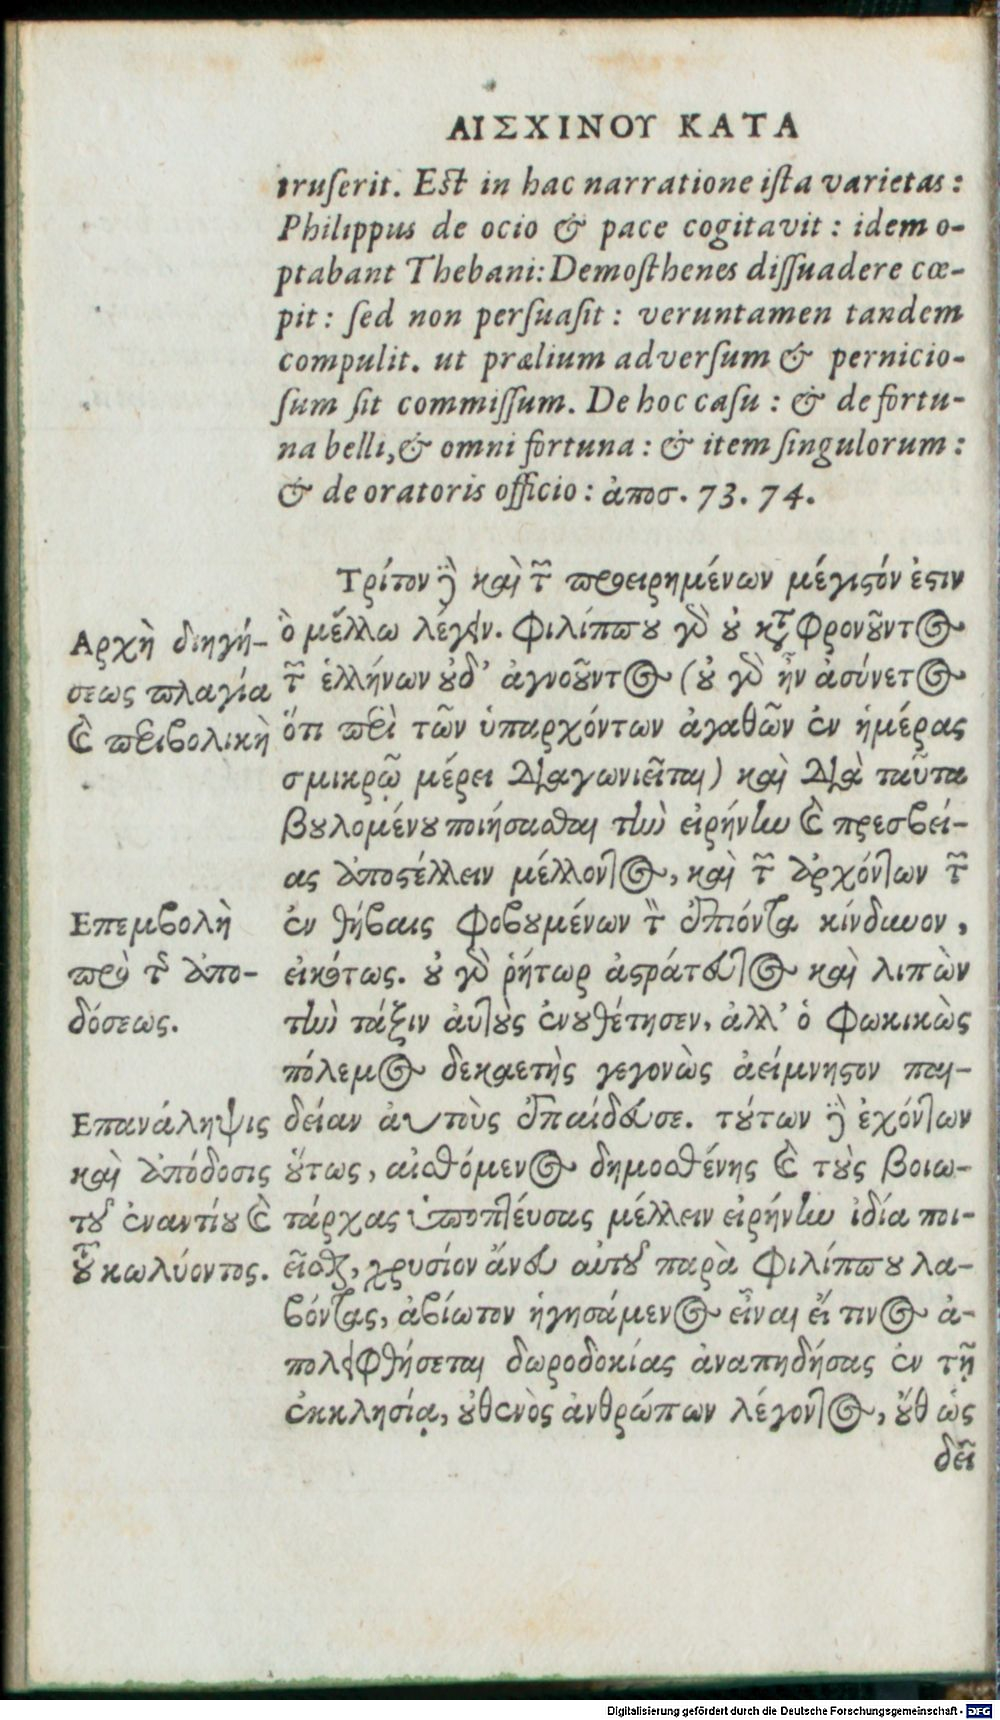 ΑΙΣΧΙΝΟΥ ΚΑΤΑ
truſerit. Est in hac narratione iſta varietas:
Philippus de ocio & pace cogitavit: idem o-
ptabant Thebani: Demoſthenes diſſuadere cœ-
pit: ſed non perſuaſit: veruntamen tandem
compulit. ut prælium adverſum & pernicio-
ſum ſit commiſſum. De hoc caſu: & de fortu-
na belli, & omni fortuna: & item ſingulorum:
& de oratoris officio: ἀποσ. 73. 74.
Τρίτον δὲ καὶ τῶν προειρημένων μέγιςόν ἐςιν
ὃ μέλλω λέγειν. Φιλίππου γὸ οὐ καταφρονοῦντος
τῶν ἑλλήνων οὐδ’ ἀγνοοῦντος (οὐ γὸ ἦν ἀσύνετος
ὅτι περὶ τῶν ὑπαρχόντων ἀγαθῶν ἐν ἡμέρας
σμικρῷ μέρει διαγωνιεῖται) καὶ διὰ ταῦτα
βουλομένου ποιήσασθαι τὴν εἰρήνην καὶ πρεσβεί-
ας ἀποςέλλειν μέλλοντος, καὶ τῶν ἀρχόντων τῶν
ἐν θήβαις φοβουμένων τὸν ἐπιόντα κίνδυνον,
εἰκότως. οὐ γὸ ῥήτωρ ἀςράτευτος καὶ λιπὼν
τὴν τάξιν αὐτοὺς ἐνουθέτησεν, ἀλλ’ ὁ φωκικὸς
πόλεμος δεκαετὴς γεγονὼς ἀείμνηςον παι-
δείαν αὐτοὺς ἐπαίδευσε. τούτων δὲ ἐχόντων
οὕτως, αἰσθόμενος δημοσθένης καὶ τοὺς βοιω-
τάρχας ὑποπτεύσας μέλλειν εἰρήνην ἰδίᾳ ποι-
εῖσθαι, χρυσίον ἄνευ αὐτοῦ παρὰ Φιλίππου λα-
βόντας, ἀβίωτον ἡγησάμενος εἶναι εἴ τινος ἀ-
πολειφθήσεται δωροδοκίας ἀναπηδήσας ἐν τῇ
ἐκκλησίᾳ, οὐθενὸς ἀνθρώπων λέγοντος, οὔθ ὡς
δεῖ
Αρχὴ διηγή-
σεως πλαγία
καὶ περιβολικὴ
Επεμβολὴ
πρὸ τῆς ἀπο-
δόσεως.
Επανάληψις
καὶ ἀπόδοσις
τοῦ ἐναντίου καὶ
τοῦ κωλύοντος.
Digitalisierung gefördert durch die Deutsche Forschungsgemeinschaft - DFG